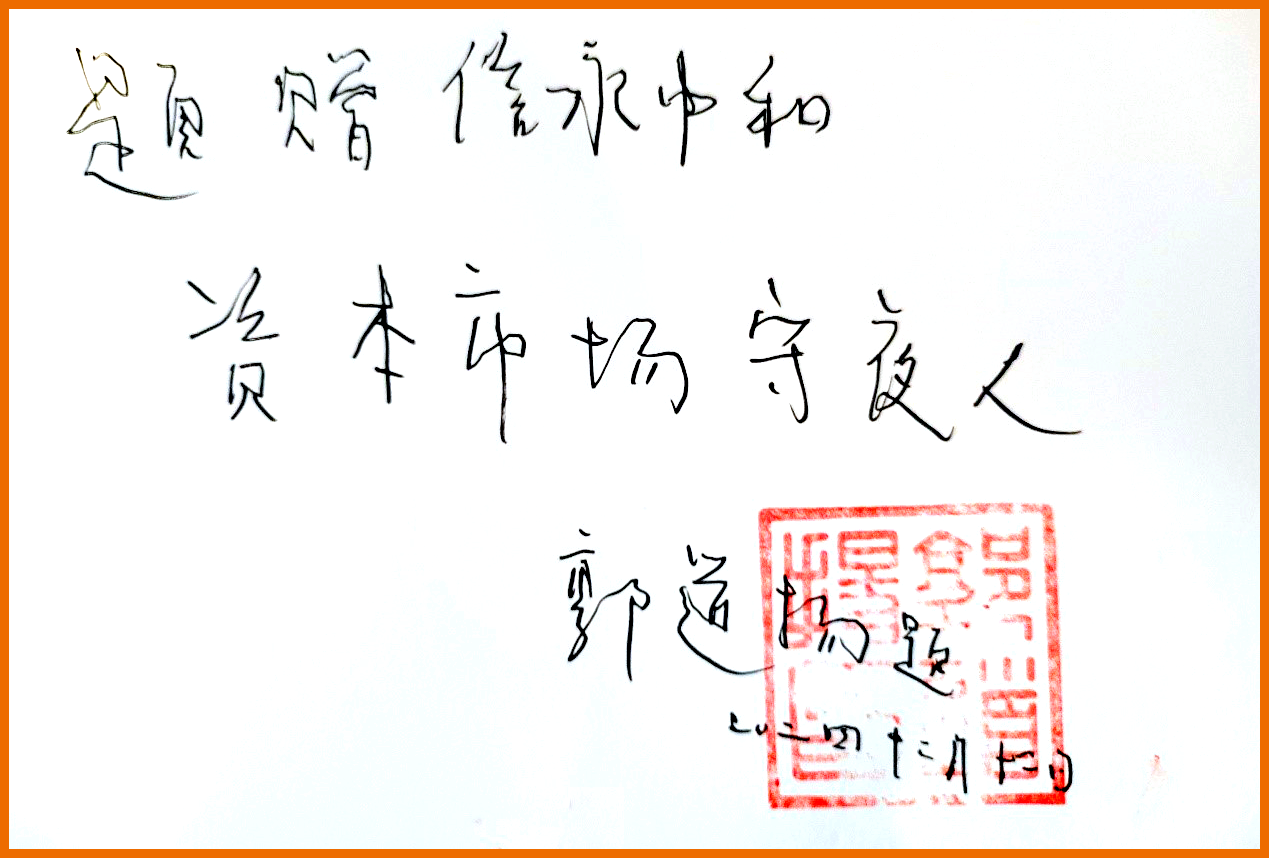 题赠 信永中和
资本市场守夜人
郭道扬题
二〇二四 十二月十二日